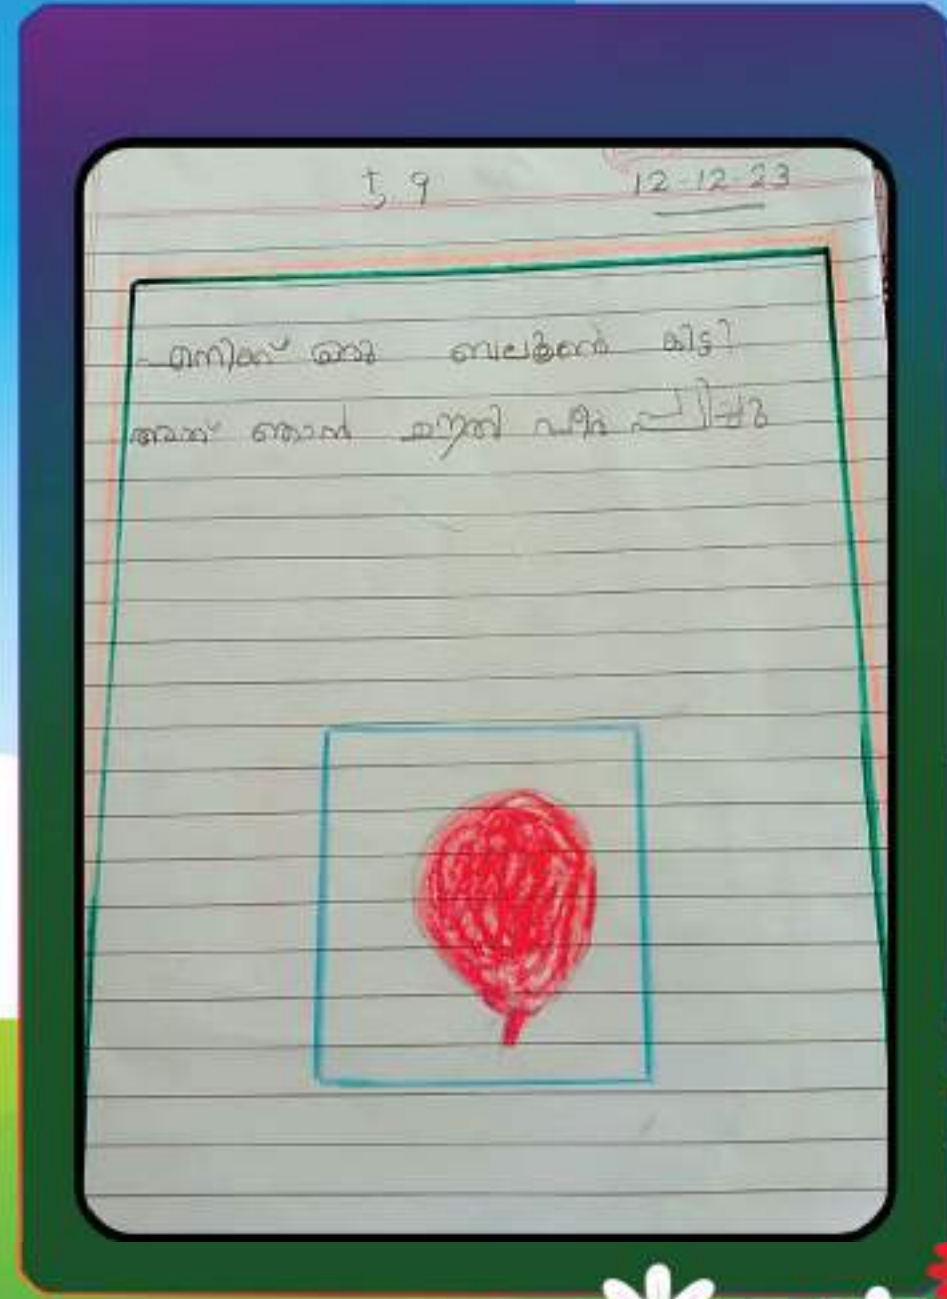 5.9 12-12-23
എനിക്ക് ഒരു ബലൂൺ കിട്ടി
അത് ഞാൻ ഊതി വീർപ്പിച്ചു